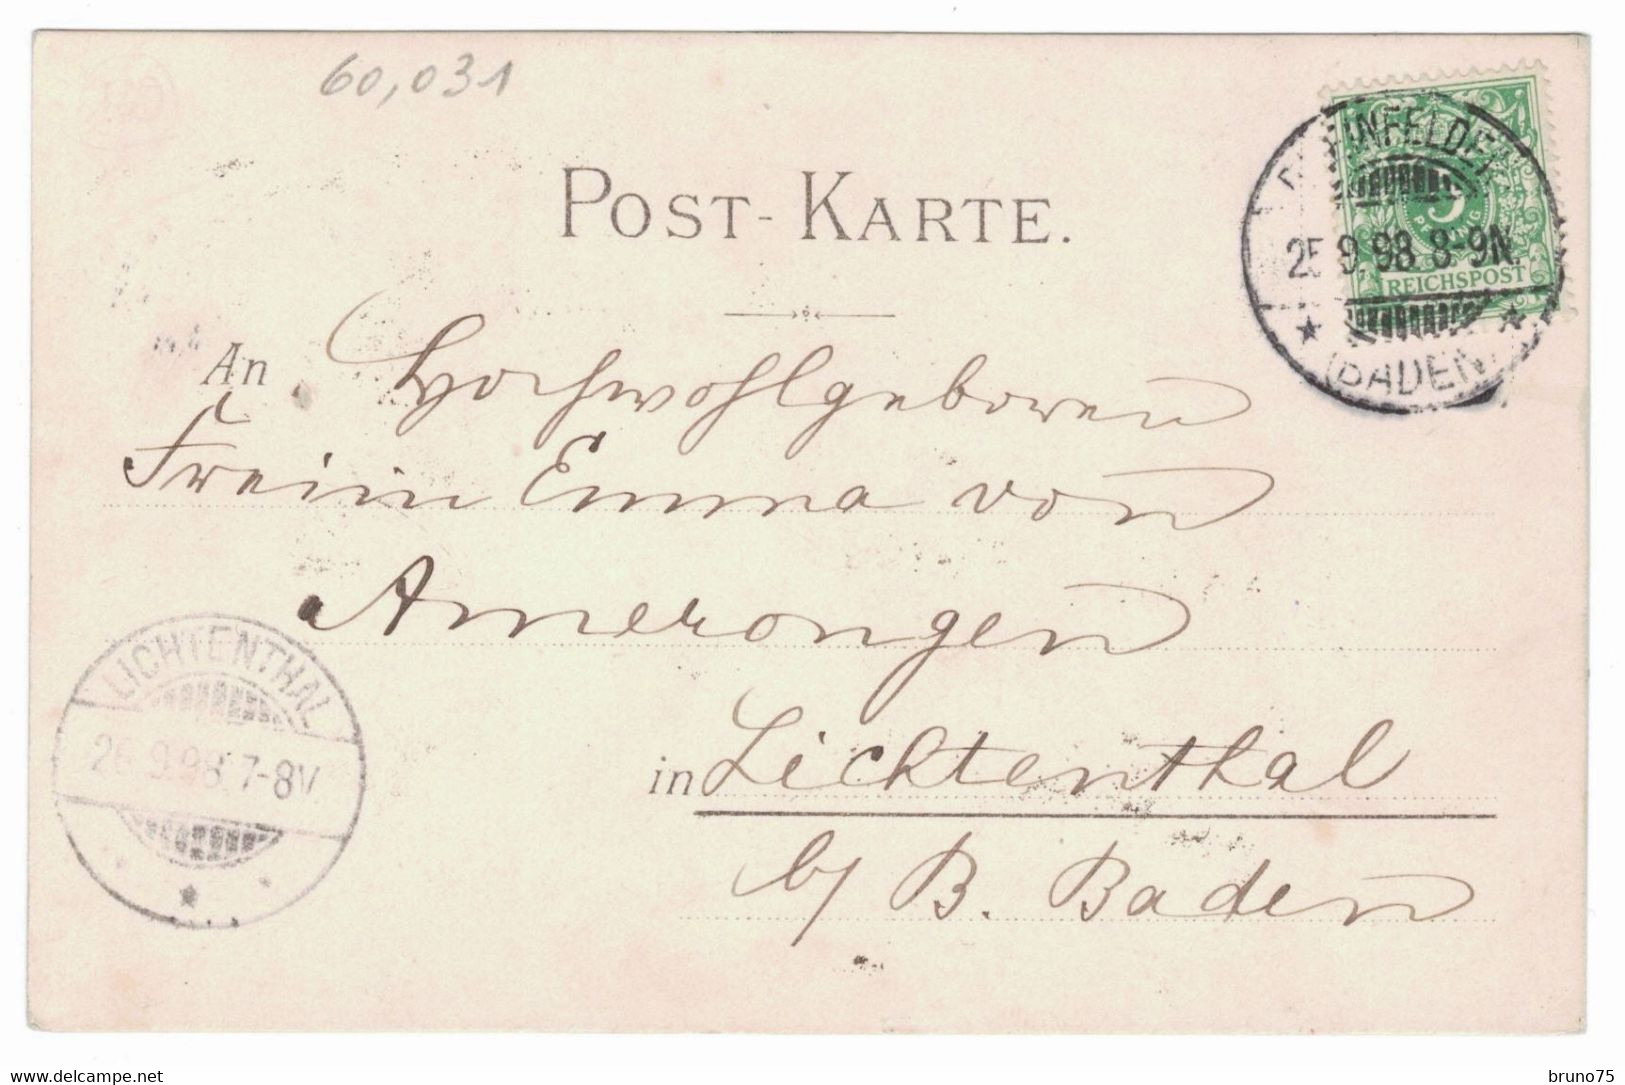 60,031
POST-KARTE.
REICHSPOST
25.9.98 8-9N.
(BADEN)
An Hochwohlgeboren
Freiin Emma von
Amerongen
in Lichtenthal
b/ B. Baden
LICHTENTHAL
26.9.98.7-8V.
www.delcampe.net
bruno75